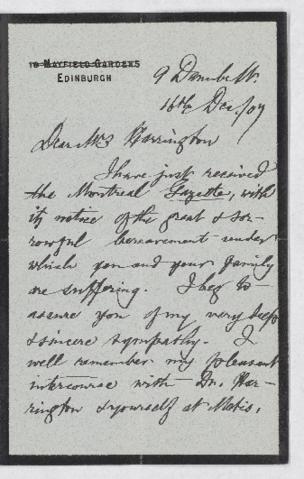 18 MAYFIELD GARDENS
EDINBURGH
9 Danube St.
16th Dec./07
Dear Mrs Harrington
I have just received
the Montreal Gazette, with
its notice of the great & sor-
rowful bereavement under
which you and your family
are suffering. I beg to
assure you of my very deep
& sincere sympathy. I
well remember my pleasant
intercourse with Dr. Har-
rington & yourself at Metis,